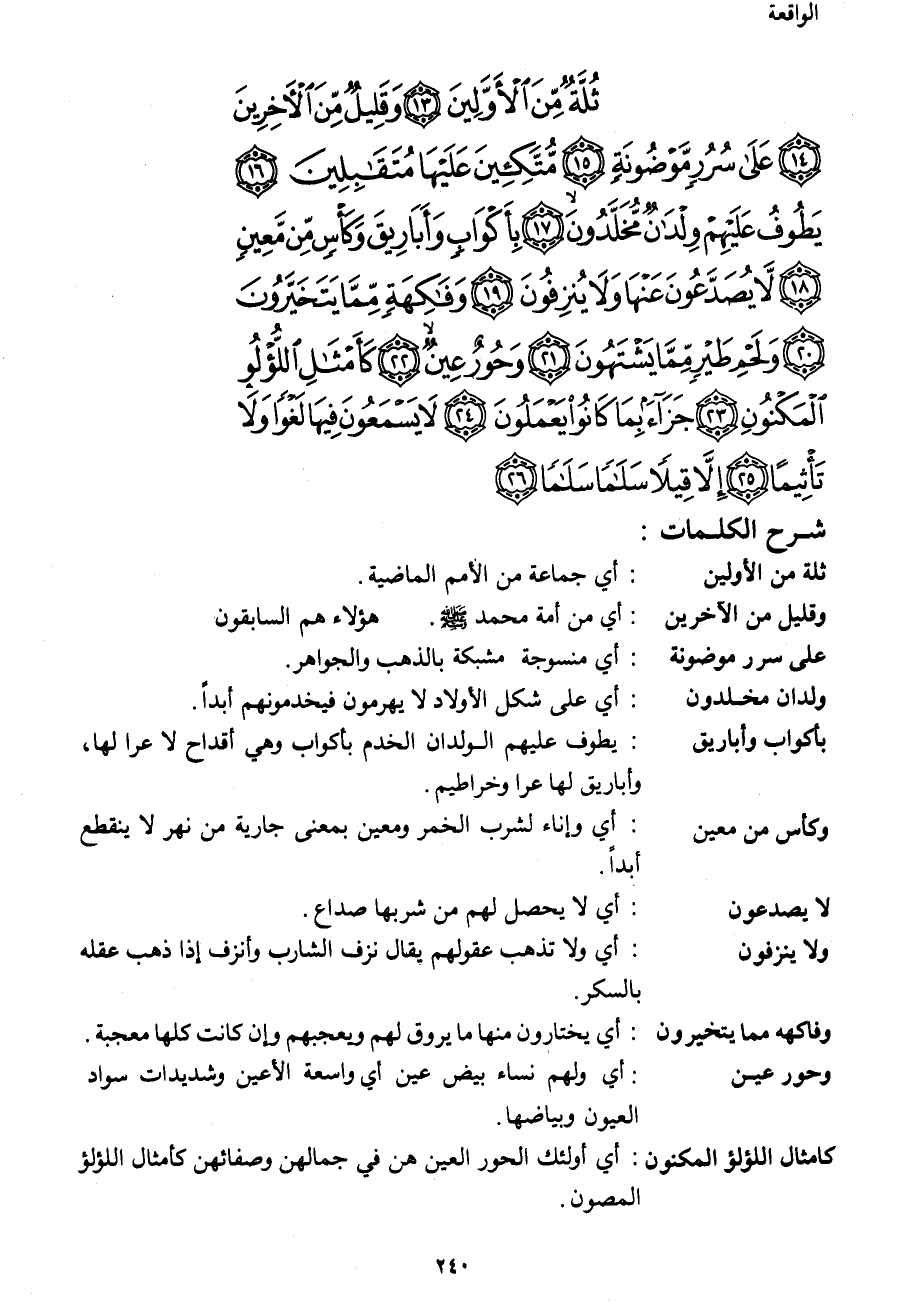 الواقعة
ثُلَّةٌ مِّنَ ٱلْأَوَّلِينَ ١٣ وَقَلِيلٌ مِّنَ ٱلْآخِرِينَ
١٤ عَلَىٰ سُرُرٍ مَّوْضُونَةٍ ١٥ مُّتَّكِـِٔينَ عَلَيْهَا مُتَقَـٰبِلِينَ ١٦
يَطُوفُ عَلَيْهِمْ وِلْدَٰنٌ مُّخَلَّدُونَ ١٧ بِأَكْوَابٍ وَأَبَارِيقَ وَكَأْسٍ مِّن مَّعِينٍ
١٨ لَّا يُصَدَّعُونَ عَنْهَا وَلَا يُنزِفُونَ ١٩ وَفَـٰكِهَةٍ مِّمَّا يَتَخَيَّرُونَ
٢٠ وَلَحْمِ طَيْرٍ مِّمَّا يَشْتَهُونَ ٢١ وَحُورٌ عِينٌ ٢٢ كَأَمْثَـٰلِ ٱللُّؤْلُؤِ
ٱلْمَكْنُونِ ٢٣ جَزَآءًۢ بِمَا كَانُوا۟ يَعْمَلُونَ ٢٤ لَا يَسْمَعُونَ فِيهَا لَغْوًا وَلَا
تَأْثِيمًا ٢٥ إِلَّا قِيلًا سَلَـٰمًا سَلَـٰمًا ٢٦
شرح الكلمات :
ثلة من الأولين : أي جماعة من الأمم الماضية.
وقليل من الآخرين : أي من أمة محمد ﷺ. هؤلاء هم السابقون
على سرر موضونة : أي منسوجة مشبكة بالذهب والجواهر.
ولدان مخلدون : أي على شكل الأولاد لا يهرمون فيخدمونهم أبداً.
بأكواب وأباريق : يطوف عليهم الولدان الخدم بأكواب وهي أقداح لا عرا لها،
وأباريق لها عرا وخراطيم.
وكأس من معين : أي وإناء لشرب الخمر ومعين بمعنى جارية من نهر لا ينقطع
أبداً.
لا يصدعون : أي لا يحصل لهم من شربها صداع.
ولا ينزفون : أي ولا تذهب عقولهم يقال نزف الشارب وأنزف إذا ذهب عقله
بالسكر.
وفاكهه مما يتخيرون : أي يختارون منها ما يروق لهم ويعجبهم وإن كانت كلها معجبة.
وحور عين : أي ولهم نساء بيض عين أي واسعة الأعين وشديدات سواد
العيون وبياضها.
كامثال اللؤلؤ المكنون : أي أولئك الحور العين هن في جمالهن وصفائهن كأمثال اللؤلؤ
المصون.
٢٤٠